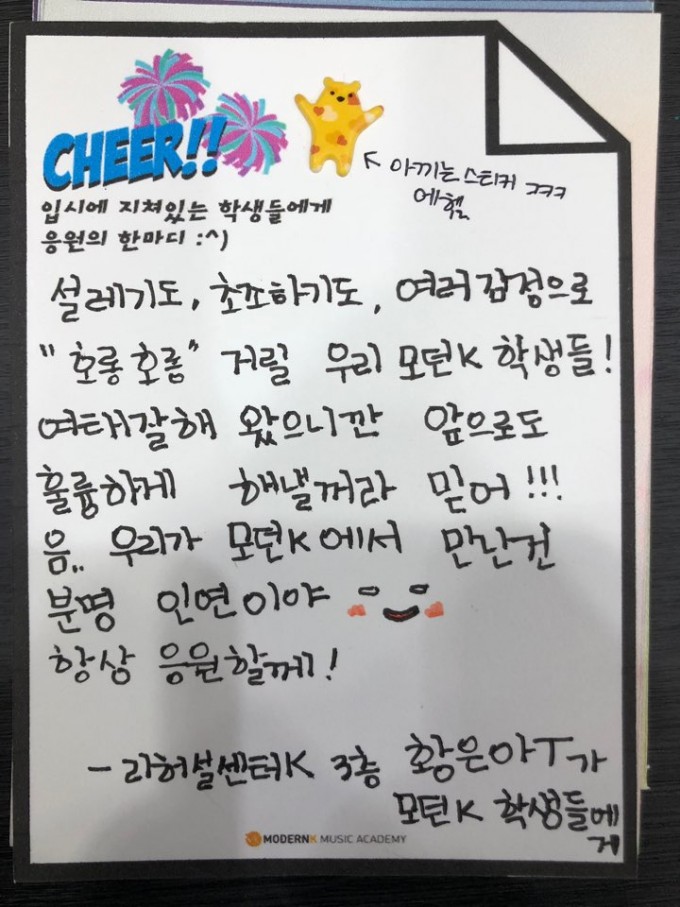 CHEER!!
K 아끼는 스티커 ㅋㅋㅋ
에헿
입시에 지쳐있는 학생들에게
응원의 한마디 :^)
설레기도, 초조하기도, 여러감정으로
"호롱호롱" 거릴 우리 모던K 학생들!
여태잘해 왔으니깐 앞으로도
훌륭하게 해낼꺼라 믿어!!!
음.. 우리가 모던K에서 만난건
분명 인연이야
항상 응원할께!
- 리허설센터K 3층 황은아T가
모던K 학생들에
게
MODERNK MUSIC ACADEMY